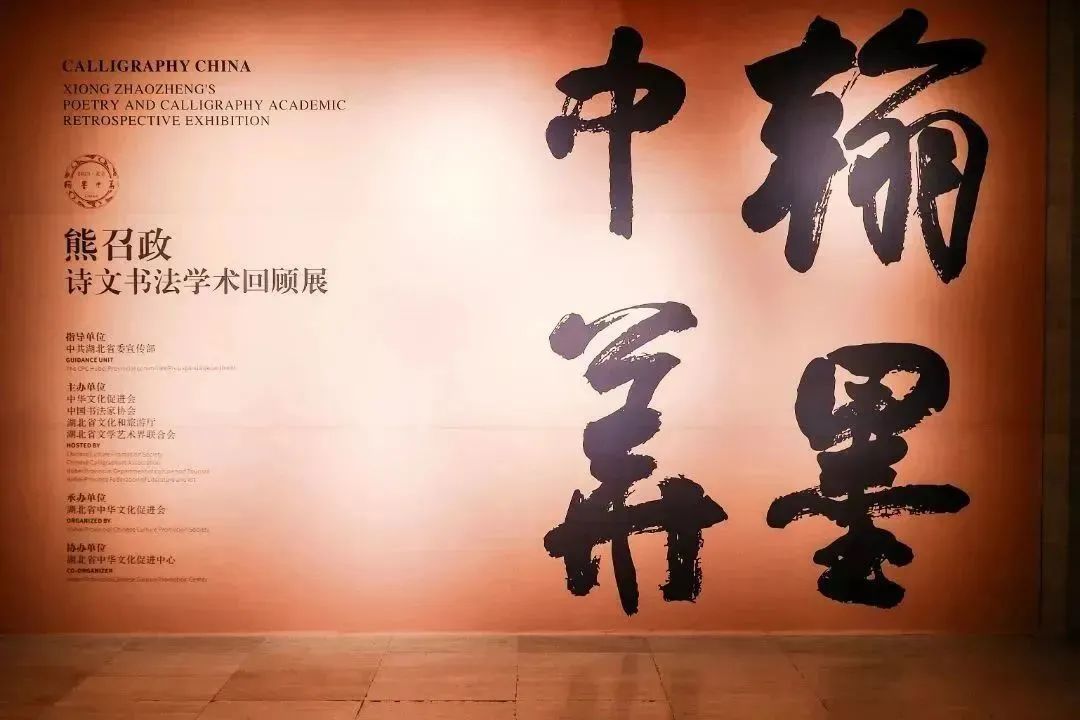 CALLIGRAPHY CHINA
XIONG ZHAOZHENG'S
POETRY AND CALLIGRAPHY ACADEMIC
RETROSPECTIVE EXHIBITION
熊召政
诗文书法学术回顾展
指导单位
中共湖北省委宣传部
GUIDANCE UNIT
主办单位
中华文化促进会
中国书法家协会
湖北省文化和旅游厅
湖北省文学艺术界联合会
HOSTED BY
Chinese Culture Promotion Society
Chinese Calligraphers Association
Hubei Provincial Department of Culture and Tourism
Hubei Province Federation of Literature and Art
承办单位
湖北省中华文化促进会
ORGANIZED BY
Hubei Provincial Chinese Culture Promotion Society
协办单位
湖北省中华文化促进中心
CO-ORGANIZER
Hubei Provincial Chinese Culture Promotion Center
翰墨
中華